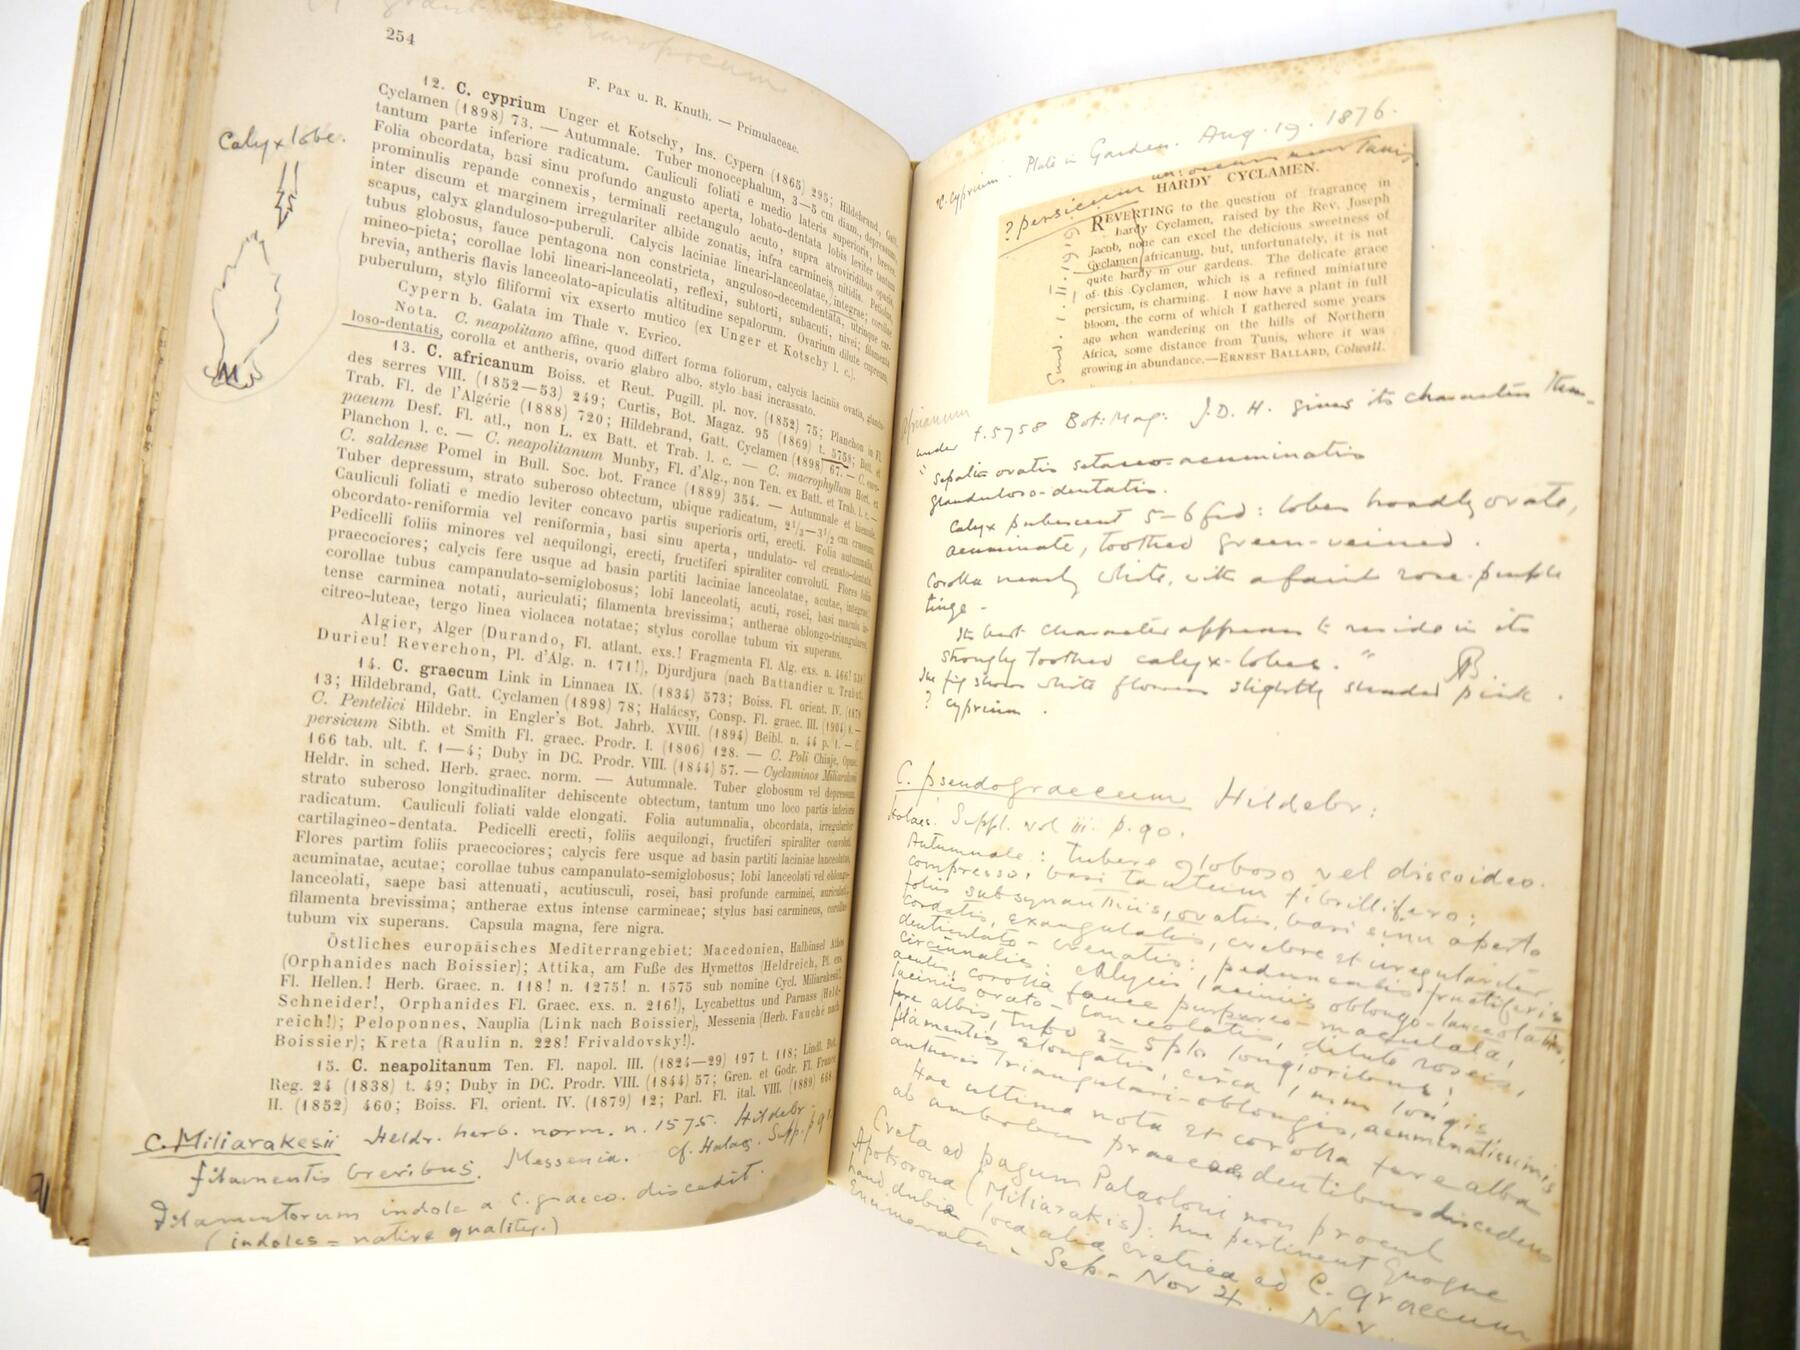 254
F. Pax u. R. Knuth. — Primulaceae.
12. C. cyprium Unger et Kotschy, Ins. Cypern (1865) 295; Hildebrand, Gatt.
Cyclamen (1898) 73. — Autumnale. Tuber monocephalum, 3—5 cm diam., depressum,
tantum parte inferiore radicatum. Cauliculi foliati e medio lateris superioris, breves.
Folia obcordata, basi sinu profundo angusto aperta, lobato-dentata lobis leviter tantum
prominulis repande connexis, terminali rectangulo acuto, supra atroviridibus opacis,
inter discum et marginem irregulariter albide zonatis, infra carmineis, nitidis. Petiolus,
scapus, calyx glanduloso-puberuli. Calycis laciniae lineari-lanceolatae, integrae; corollae
tubus globosus, fauce pentagona non constricta, anguloso-decemdentata, utrinque car-
mineo-picta; corollae lobi lineari-lanceolati, reflexi, subtorti, subacuti, nivei; filamenta
brevia, antheris flavis lanceolato-apiculatis altitudine sepalorum. Ovarium dilute cupreum,
puberulum, stylo filiformi vix exserto mutico (ex Unger et Kotschy l. c.).
Cypern b. Galata im Thale v. Evrico.
Nota. C. neapolitano affine, quod differt forma foliorum, calycis laciniis ovatis, glandu-
loso-dentatis, corolla et antheris, ovario glabro albo, stylo basi incrassato.
13. C. africanum Boiss. et Reut. Pugill. pl. nov. (1852) 75; Planchon in Fl.
des serres VIII. (1852—53) 249; Curtis, Bot. Magaz. 95 (1869) t. 5758; Batt. et
Trab. Fl. de l'Algérie (1888) 720; Hildebrand, Gatt. Cyclamen (1898) 67. — C. euro-
paeum Desf. Fl. atl., non L. ex Batt. et Trab. l. c. — C. macrophyllum Hort. ex
Planchon l. c. — C. neapolitanum Munby, Fl. d'Alg., non Ten. ex Batt. et Trab. l. c. —
C. saldense Pomel in Bull. Soc. bot. France (1889) 354. — Autumnale et hiemale.
Tuber depressum, strato suberoso obtectum, ubique radicatum, 2½—3½ cm crassum.
Cauliculi foliati e medio leviter concavo partis superioris orti, erecti. Folia autumnalia,
obcordato-reniformia vel reniformia, basi sinu aperta, undulato- vel crenato-dentata.
Pedicelli foliis minores vel aequilongi, erecti, fructiferi spiraliter convoluti. Flores foliis
praecociores; calycis fere usque ad basin partiti laciniae lanceolatae, acutae, integrae;
corollae tubus campanulato-semiglobosus; lobi lanceolati, acuti, rosei, basi macula in-
tense carminea notati, auriculati; filamenta brevissima; antherae oblongo-triangulares,
citreo-luteae, tergo linea violacea notatae; stylus corollae tubum vix superans.
Algier, Alger (Durando, Fl. atlant. exs.! Fragmenta Fl. Alg. exs. n. 466!
Durieu! Reverchon, Pl. d'Alg. n. 171!), Djurdjura (nach Battandier u. Trabut).
14. C. graecum Link in Linnaea IX. (1834) 573; Boiss. Fl. orient. IV. (1879)
13; Hildebrand, Gatt. Cyclamen (1898) 78; Halácsy, Consp. Fl. graec. III. (1904) 8. —
C. Pentelici Hildebr. in Engler's Bot. Jahrb. XVIII. (1894) Beibl. n. 44 p. 1. — C.
persicum Sibth. et Smith Fl. graec. Prodr. I. (1806) 128. — C. Poli Chiaje, Opusc.
166 tab. ult. f. 1—4; Duby in DC. Prodr. VIII. (1844) 57. — Cyclaminos Miliarakesii
Heldr. in sched. Herb. graec. norm. — Autumnale. Tuber globosum vel depressum,
strato suberoso longitudinaliter dehiscente obtectum, tantum uno loco partis inferioris
radicatum. Cauliculi foliati valde elongati. Folia autumnalia, obcordata, irregulariter
cartilagineo-dentata. Pedicelli erecti, foliis aequilongi, fructiferi spiraliter convoluti.
Flores partim foliis praecociores; calycis fere usque ad basin partiti laciniae lanceolatae,
acuminatae, acutae; corollae tubus campanulato-semiglobosus; lobi lanceolati vel oblongo-
lanceolati, saepe basi attenuati, acutiusculi, rosei, basi profunde carminei, auriculati;
filamenta brevissima; antherae extus intense carmineae; stylus basi carmineus, corollae
tubum vix superans. Capsula magna, fere nigra.
Östliches europäisches Mediterrangebiet: Macedonien, Halbinsel Athos
(Orphanides nach Boissier); Attika, am Fuße des Hymettos (Heldreich, Pl. exs.
Fl. Hellen.! Herb. Graec. n. 118! n. 1275! n. 1575 sub nomine Cycl. Miliarakesii!
Schneider!, Orphanides Fl. Graec. exs. n. 216!), Lycabettus und Parnass (Held-
reich!); Peloponnes, Nauplia (Link nach Boissier), Messenia (Herb. Fauché nach
Boissier); Kreta (Raulin n. 228! Frivaldovsky!).
15. C. neapolitanum Ten. Fl. napol. III. (1824—29) 197 t. 118; Lindl. Bot.
Reg. 24 (1838) t. 49; Duby in DC. Prodr. VIII. (1844) 57; Gren. et Godr. Fl. France
II. (1852) 460; Boiss. Fl. orient. IV. (1879) 12; Parl. Fl. ital. VIII. (1889)
Calyx lobe.
C. Miliarakesii Heldr. herb. norm. n. 1575. Hildebr.
filamentis brevibus. Messenia. cf. Halac. Supp. p 91.
Filamentorum indole a C. graeco discedit.
(indoles = native quality.)
C. cyprium. Plate in Garden. Aug. 19. 1876.
? persicum near Tunis.
HARDY CYCLAMEN.
REVERTING to the question of fragrance in
hardy Cyclamen, raised by the Rev. Joseph
Jacob, none can excel the delicious sweetness of
Cyclamen africanum, but, unfortunately, it is not
quite hardy in our gardens. The delicate grace
of this Cyclamen, which is a refined miniature
persicum, is charming. I now have a plant in full
bloom, the corm of which I gathered some years
ago when wandering on the hills of Northern
Africa, some distance from Tunis, where it was
growing in abundance.—ERNEST BALLARD, Colwall.
Gard. 1. II. 1919
africanum
under t. 5758 Bot: Mag: J. D. H. gives its characters thus,
"Sepalis ovatis setaceo-acuminatis
glanduloso-dentatis.
Calyx pubescent 5-6 fid: lobes broadly ovate,
acuminate, toothed green-veined.
Corolla nearly white, with a faint rose-purple
tinge.
Its best character appears to reside in its
strongly toothed calyx-lobes."
The fig shows white flowers slightly shaded pink.
? cyprium.
C. pseudograecum Hildebr:
Halac. Suppl. vol iii. p. 90.
Autumnale: tubere globoso vel discoideo.
compresso, basi tantum fibrillifero;
foliis subsynanthiis, ovatis, basi sinu aperto
cordatis, exangulatis, crebre et irregulariter
denticulato-crenatis: pedunculis fructiferis
circinnatis: calycis laciniis oblongo-lanceolatis,
acutis, corolla fauce purpureo-maculata,
laciniis ovato-lanceolatis, dilute roseis,
fere albis, tubo 3-5plo longioribus;
filamentis elongatis, circa 1 mm longis,
antheris triangulari-oblongis, acuminatissimis
Hac ultima nota et corolla fere alba
ab ambobus praecedentibus discedens
Creta ad pagum Palaeloni non procul
Apokorona (Miliarakis): huc pertinent quoque
haud dubie loca alia cretica ad C. graecum
enumerata. Sep - Nov